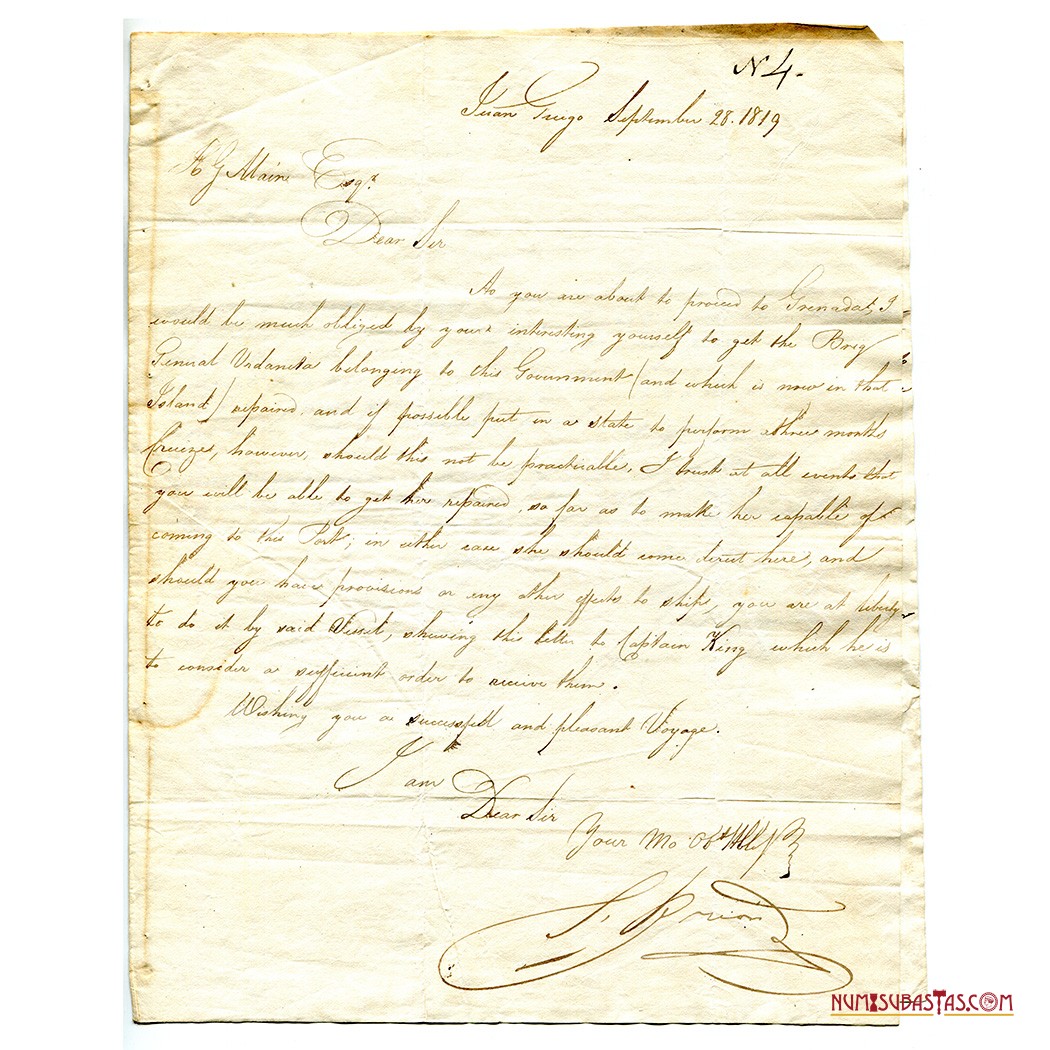 N 4.
Juan Griego September 28. 1819
A G Main Esqr.
Dear Sir
As you are about to proceed to Grenada, I
would be much obliged by your interesting yourself to get the Brig
General Urdaneta belonging to this Government (and which is now in that
Island) repaired, and if possible put in a state to perform a three months
Cruize, however, should this not be practicable, I trust at all events that
you will be able to get her repaired, so far as to make her capable of
coming to this Port; in either case she should come direct here, and
should you have provisions or any other effects to ship, you are at liberty
to do it by said Vessel, shewing this letter to Captain King which he is
to consider a sufficient order to receive them.
Wishing you a successfull and pleasant Voyage.
I am
Dear Sir
Your Mo Obt
L. Brion
NUMISUBASTAS.COM